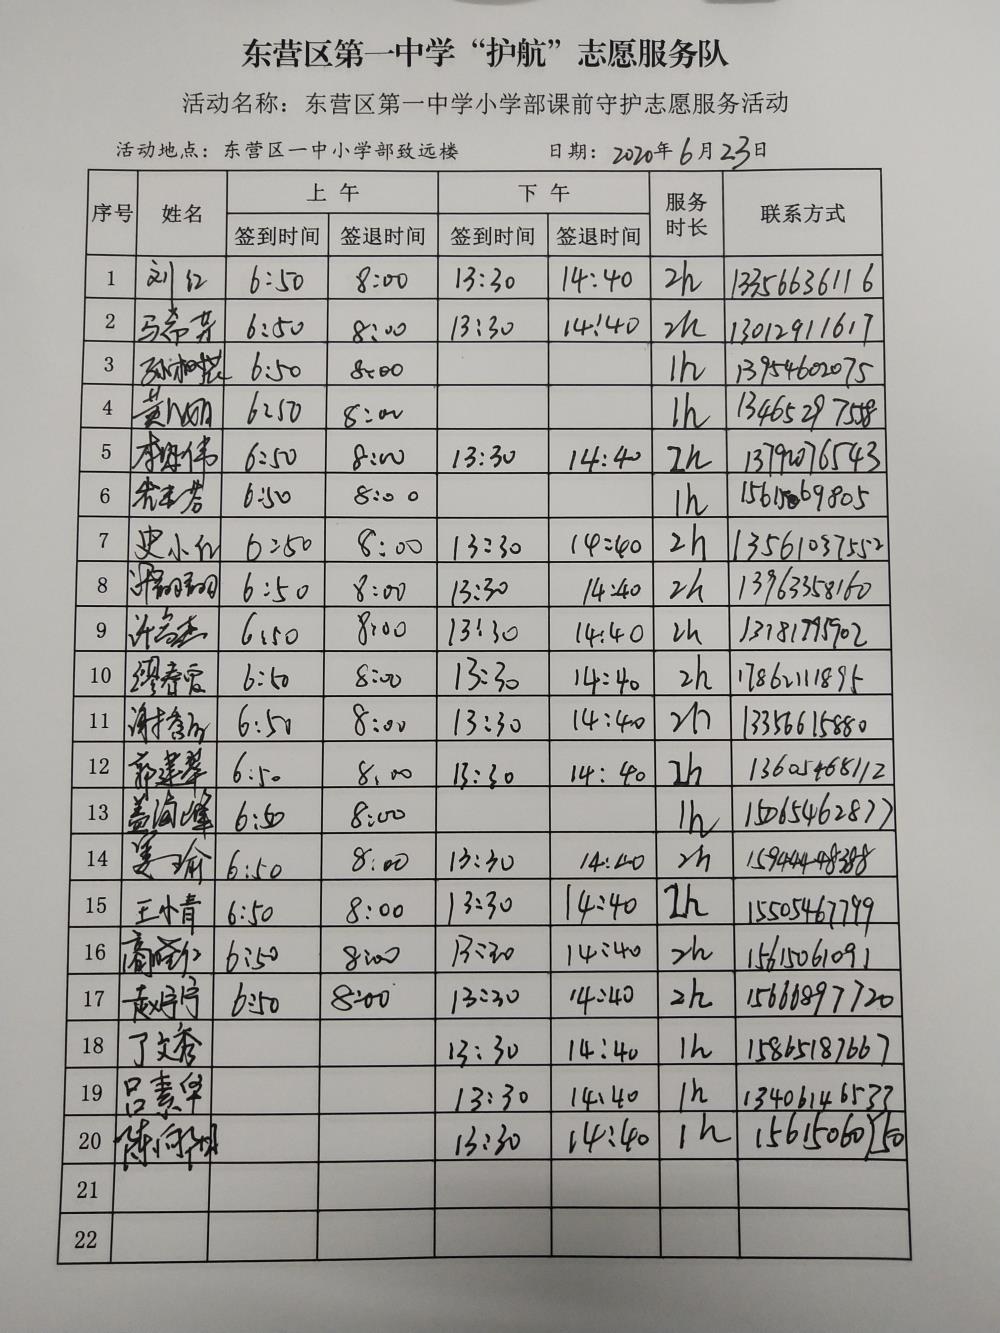 东营区第一中学“护航”志愿服务队
活动名称：东营区第一中学小学部课前守护志愿服务活动
活动地点：东营区一中小学部致远楼 日期：2020年6月23日
序号 姓名 上午 下午 服务时长 联系方式
签到时间 签退时间 签到时间 签退时间
1 刘红 6:50 8:00 13:30 14:40 2h 13356636116
2 马希芳 6:50 8:00 13:30 14:40 2h 13012911617
3 6:50 8:00 1h 13954602075
4 6:50 8:00 1h 13465297558
5 6:50 8:00 13:30 14:40 2h 13792076543
6 6:50 8:00 1h 15615069805
7 史小红 6:50 8:00 13:30 14:40 2h 13561037552
8 6:50 8:00 13:30 14:40 2h 13963358160
9 6:50 8:00 13:30 14:40 2h
10 缪春爱 6:50 8:00 13:30 14:40 2h 17862111895
11 6:50 8:00 13:30 14:40 2h 13356615880
12 郭建琴 6:50 8:00 13:30 14:40 2h 13605468112
13 盖海峰 6:50 8:00 1h 15065462877
14 姜瑜 6:50 8:00 13:30 14:40 2h
15 王小青 6:50 8:00 13:30 14:40 2h 15505467799
16 商晓红 6:50 8:00 13:30 14:40 2h 15615061091
17 赵宁宁 6:50 8:00 13:30 14:40 2h 15666897720
18 丁文秀 13:30 14:40 1h 15865187667
19 吕素华 13:30 14:40 1h 13406146533
20 13:30 14:40 1h 15615060750
21
22